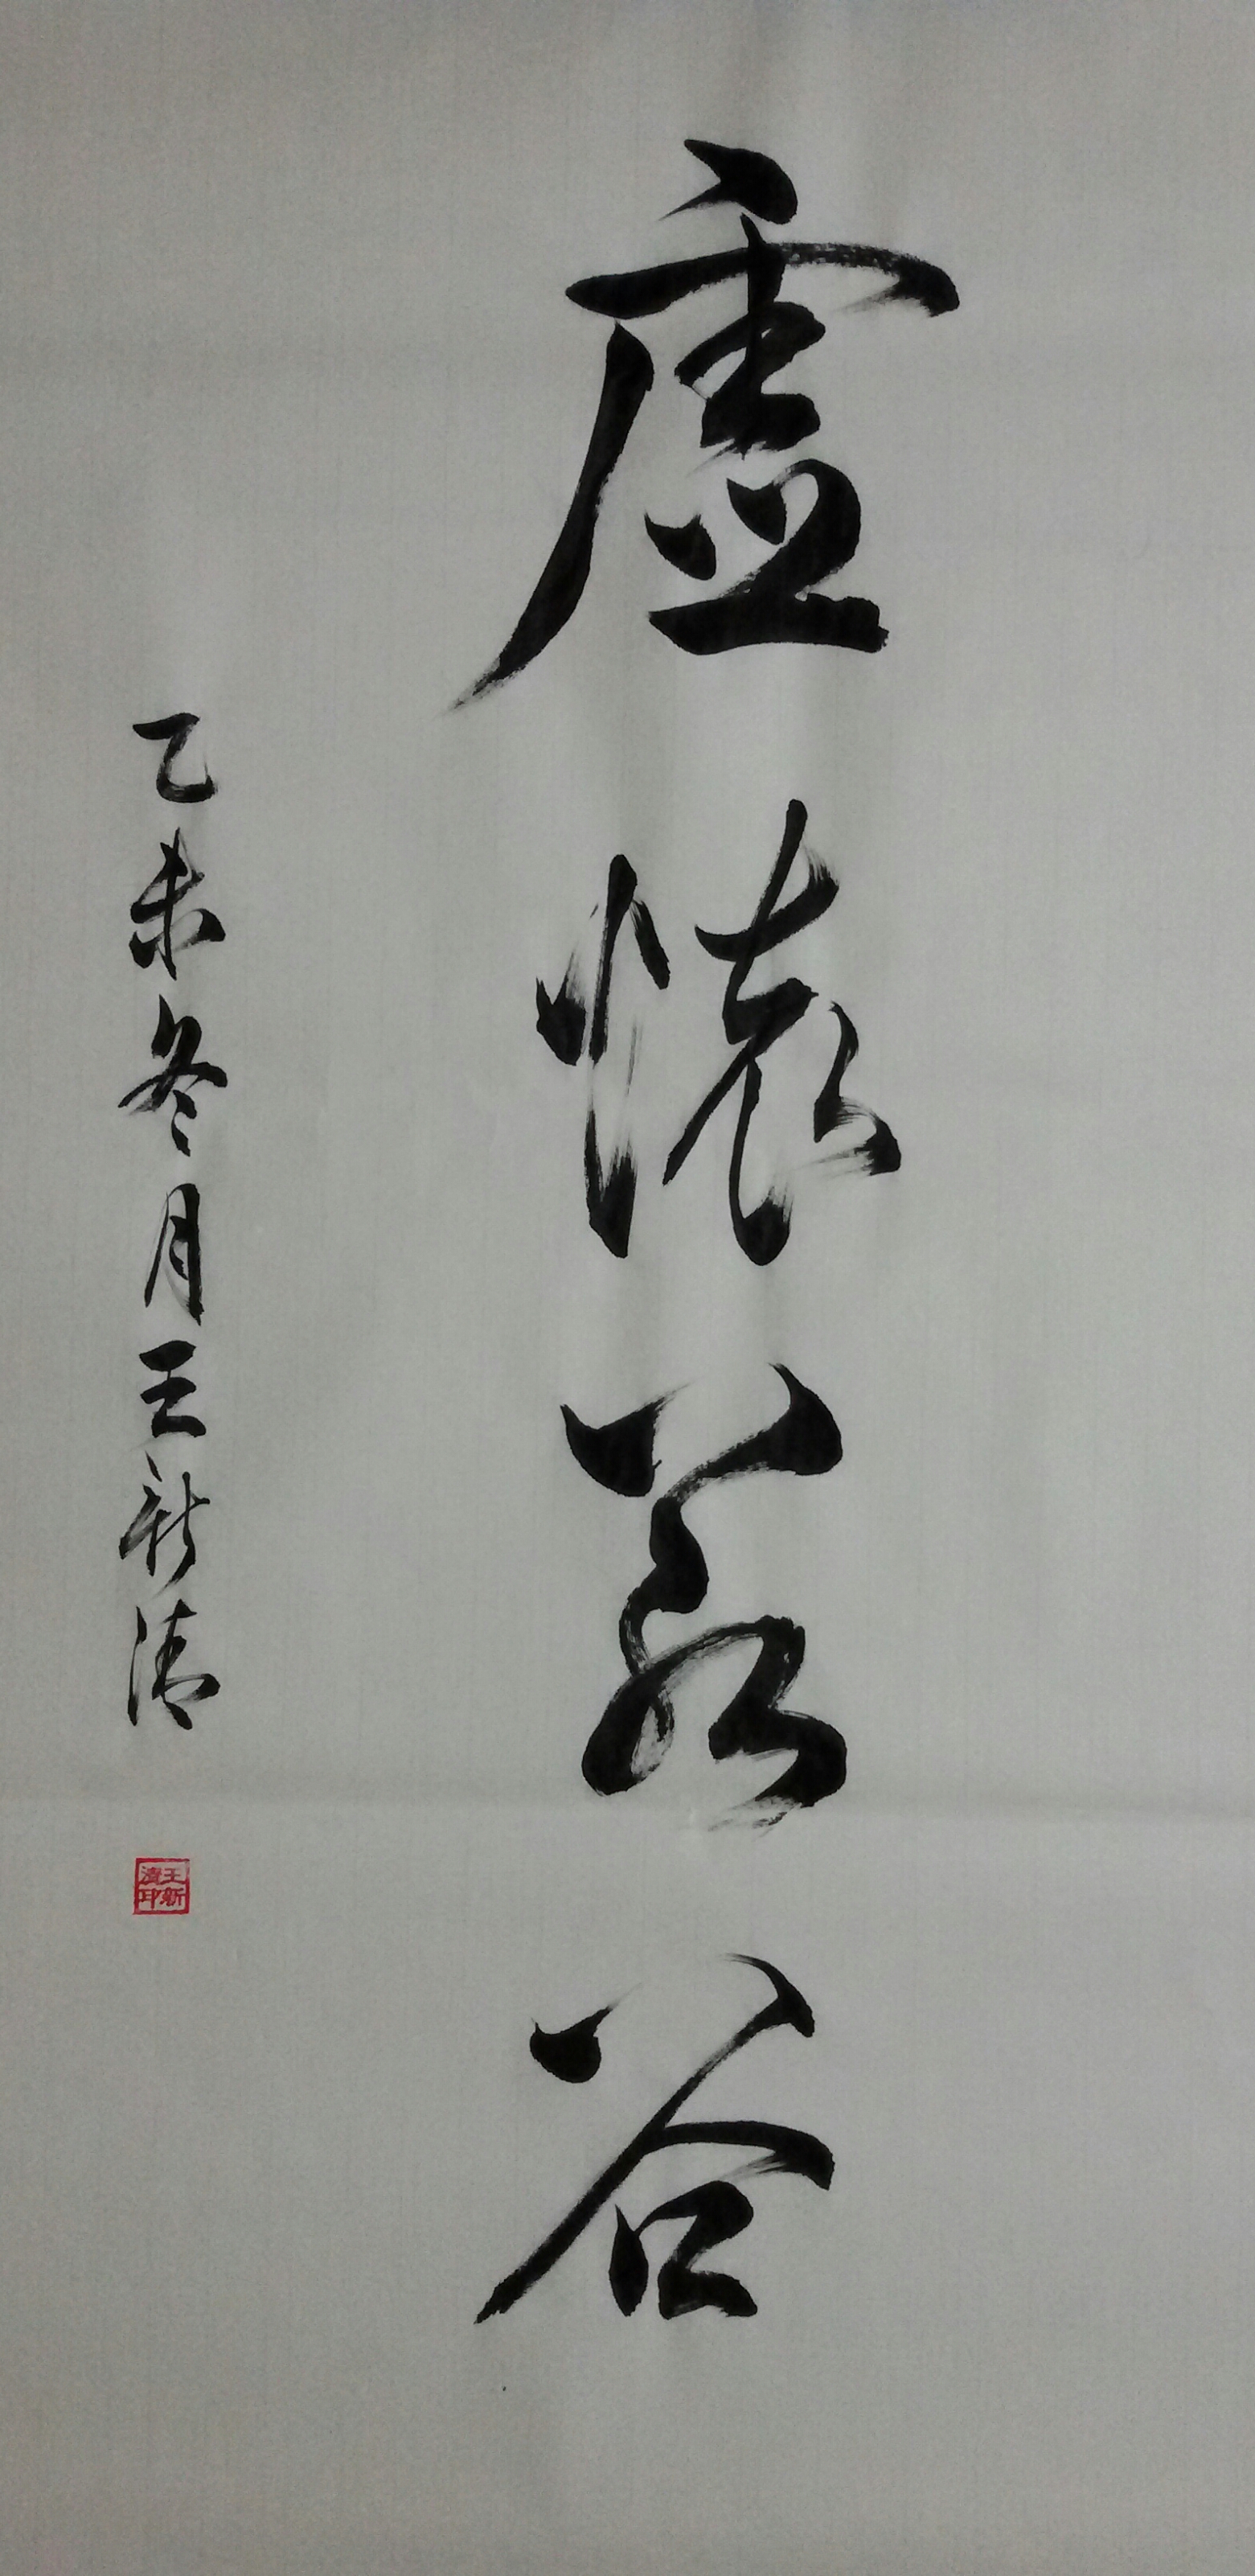 虚怀若谷
乙未冬月王新清
王新
清印